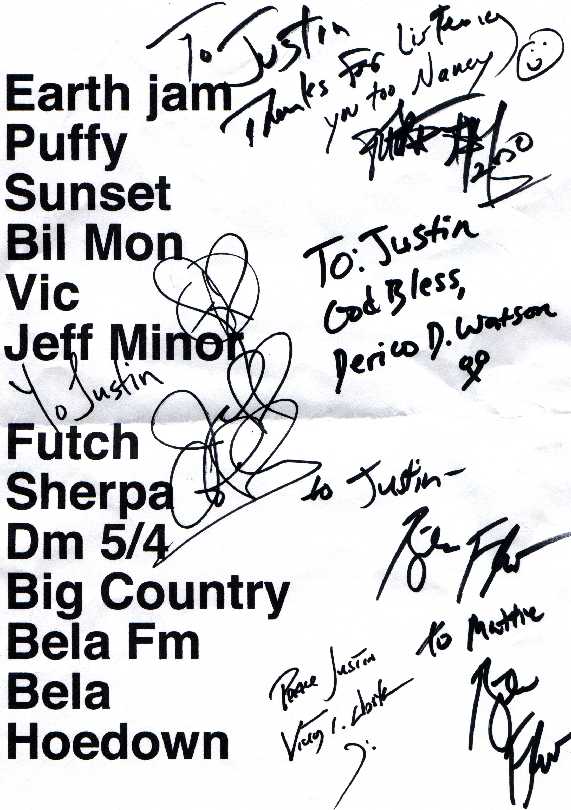 To Justin
Thanks For Listening
you too Nancy
2000
Earth jam
Puffy
Sunset
Bil Mon
Vic
Jeff Minor
To: Justin
God Bless,
Derico D. Watson
Yo Justin
Futch
Sherpa
Dm 5/4
Big Country
Bela Fm
Bela
Hoedown
to Justin-
to Mattie
Peace Justin